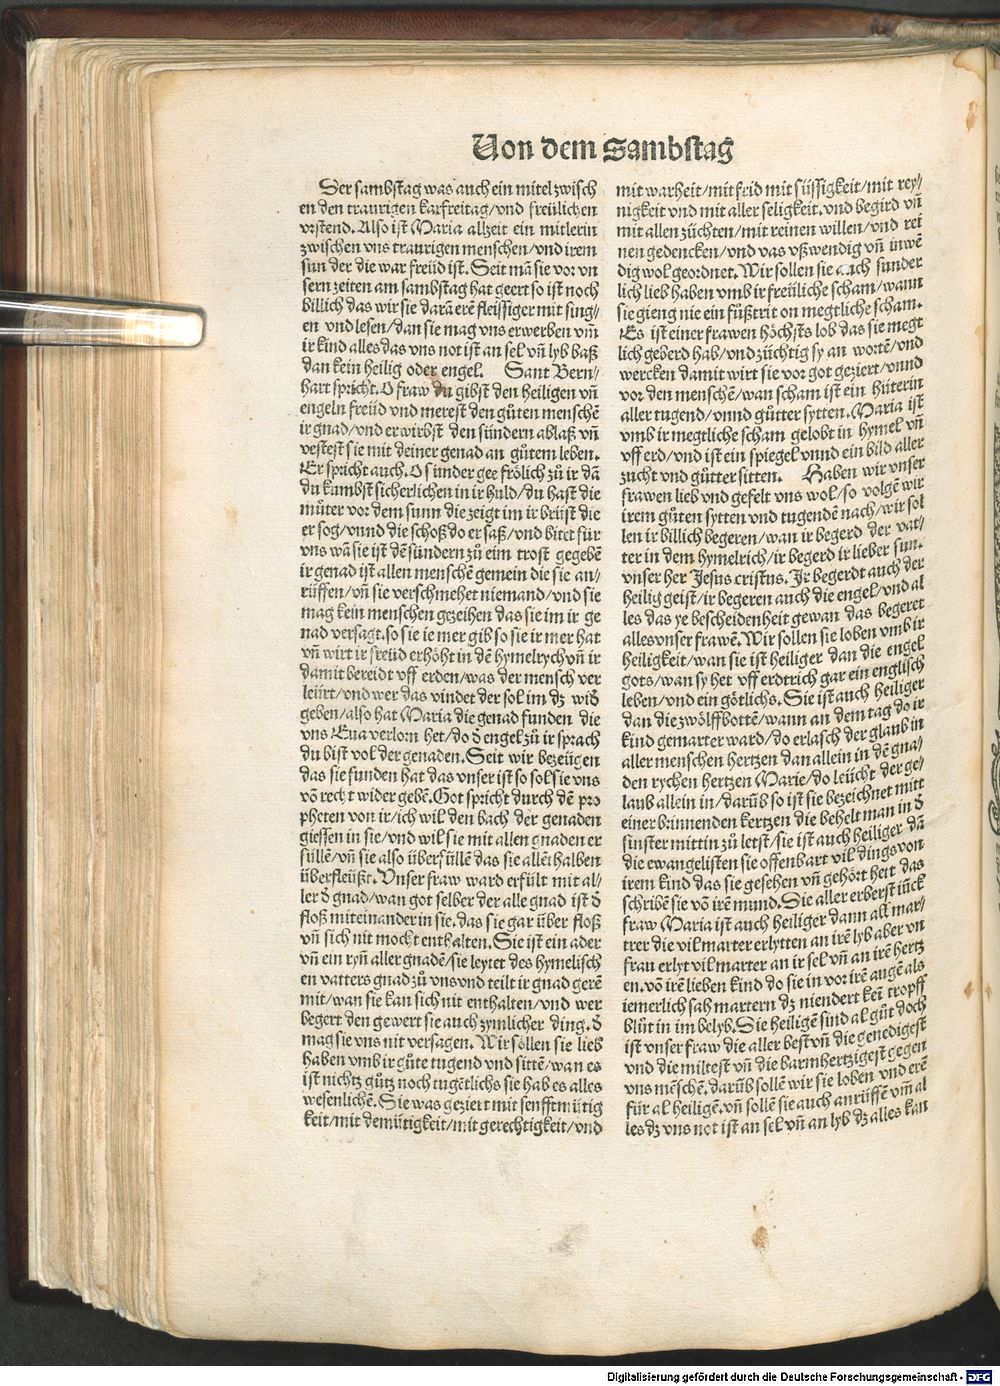 Von dem Sambstag
Der sambstag was auch ein mitel zwisch
en den traurigen karfreitag/vnd freülichen
vrstend. Also ist Maria allzeit ein mitlerin
zwischen vns traurigen menschen/vnd irem
sun der die war freüd ist. Seit mā sie vor vn
sern zeiten am sambstag hat geert so ist noch
billich das wir sie darā erē fleissiger mit sing/
en vnd lesen/dan sie mag vns erwerben vm̄
ir kind alles das vns not ist an sel vn̄ lyb baß
dan kein heilig oder engel. Sant Bern/
hart spricht. O fraw du gibst den heiligen vn̄
engeln freüd vnd merest den gůten menschē
ir gnad/vnd erwirbst den sündern ablaß vn̄
vestest sie mit deiner genad an gůtem leben.
Er spricht auch. O sünder gee frölich zů ir dā
du kumbst sicherlichen in ir huld/du hast die
můter vor dem sunn die zeigt im ir brüst die
er sog/vnnd die schoß do er saß/vnd bitet für
vns wā sie ist dē sündern zů eim trost gegebē
ir genad ist allen menschē gemein die sie an/
rüffen/vn̄ sie verschmehet niemand/vnd sie
mag kein menschen gezeihen das sie im ir ge
nad versagt. so sie ie mer gib so sie ir mer hat
vn̄ wirt ir freüd erhöht in dē hymelrych vn̄ ir
damit bereidt vff erden/was der mensch ver
leürt/vnd wer das vindet der sol im dz wid̄
geben/also hat Maria die genad funden die
vns Eua verlorn het/do d̄ engel zů ir sprach
du bist vol der genaden. Seit wir bezeügen
das sie funden hat das vnser ist so sol sie vns
vō recht wider gebē. Got spricht durch dē pro
pheten von ir/ich wil den bach der genaden
giessen in sie/vnd wil sie mit allen gnaden er
füllē/vn̄ sie also überfüllē das sie allēt halben
überfleüßt. Vnser fraw ward erfült mit al/
ler d̄ gnad/wan got selber der alle gnad ist d̄
floß miteinander in sie. das sie gar über floß
vn̄ sich nit mocht enthalten. Sie ist ein ader
vn̄ ein ryn̄ aller gnadē/sie leytet des hymelisch
en vatters gnad zů vns vnd teilt ir gnad gerē
mit/wan sie kan sich nit enthalten/vnd wer
begert den gewert sie auch zymlicher ding. d̄
mag sie vns nit versagen. Wir söllen sie lieb
haben vmb ir gůte tugend vnd sittē/wan es
ist nichtz gůtz noch tugētlichs sie hab es alles
wesenlichē. Sie was geziert mit senfftmütig
keit/mit demütigkeit/mit gerechtigkeit/vnd
mit warheit/mit frid mit süssigkeit/mit rey/
nigkeit vnd mit aller seligkeit. vnd begird vn̄
mit allen züchten/mit reinen willen/vnd rei
nen gedencken/vnd was vßwendig vn̄ inwē
dig wol geordnet. Wir sollen sie auch sunder
lich lieb haben vmb ir freüliche scham/wann
sie gieng nie ein fůßtrit on megtliche scham.
Es ist einer frawen höchsts lob das sie megt
lich geberd hab/vnd züchtig sy an wortē/vnd
wercken damit wirt sie vor got geziert/vnnd
vor den menschē/wan scham ist ein hüterin
aller tugend/vnnd gůtter sytten. Maria ist
vmb ir megtliche scham gelobt in hymel vn̄
vff erd/vnd ist ein spiegel vnnd ein bild aller
zucht vnd gůtter sitten. Haben wir vnser
frawen lieb vnd gefelt vns wol/so volgē wir
irem gůten sytten vnd tugendē nach/wir sol
len ir billich begeren/wan ir begerd der vat/
ter in dem hymelrich/ir begerd ir lieber sun.
vnser her Jesus cristus. Ir begerdt auch der
heilig geist/ir begeren auch die engel/vnd al
les das ye bescheidenheit gewan das begeret
alles vnser frawē. Wir sollen sie loben vmb ir
heiligkeit/wan sie ist heiliger dan die engel
gots/wan sy het vff erdtrich gar ein englisch
leben/vnd ein götlichs. Sie ist auch heiliger
dan die zwölffbottē/wann an dem tag do ir
kind gemarter ward/do erlasch der glaub in
aller menschen hertzen dan allein in dē gna/
den rychen hertzen Marie/do leücht der ge/
laub allein in/darūb so ist sie bezeichnet mitt
einer brinnenden kertzen die behelt man in d̄
finster mittin zů letst/sie ist auch heiliger dā
die ewangelisten sie offenbart vil dings von
irem kind das sie gesehen vn̄ gehört hett das
schribē sie vō irē mund. Sie aller erberst iūck
fraw Maria ist auch heiliger dann all mar/
trer die vil marter erlytten an irē lyb aber vn
frau erlyt vil marter an ir sel vn̄ an irē hertz
en. vō irē lieben kind do sie in vor irē augē als
iemerlich sah martern dz niendert kei tropff
blůt in im belyb. Sie heiligē sind al gůt doch
ist vnser fraw die aller best vn̄ die genedigest
vnd die miltest vn̄ die barmhertzigest gegen
vns mēschē. darūb sollē wir sie loben vnd erē
für al heiligē. vn̄ sollē sie auch anrüffē vm̄ al
les dz vns not ist an sel vn̄ an lyb dz alles kan
Digitalisierung gefördert durch die Deutsche Forschungsgemeinschaft - DFG